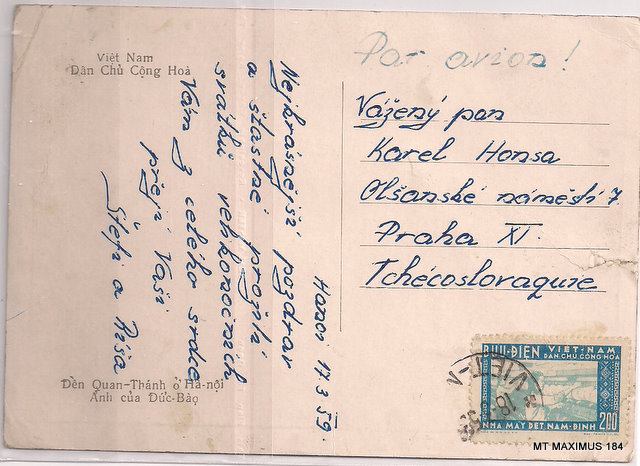 Việt Nam
Dân Chủ Cộng Hoà
Hanoi 17.3.59.
Nejkrásnější pozdrav
a šťastné prožití
svátků velikonočních
Vám z celého srdce
přejí Vaši
Štefi a
Par avion!
Vážený pan
Karel Honsa
Olšanské náměstí 7
Praha XI.
Tchécoslovaquie
Đền Quan-Thánh ở Hà-nội
Ảnh của Đức-Bảo
BƯU-ĐIỆN VIỆT-NAM
DÂN CHỦ CỘNG HOÀ
VIET-N
NHÀ MÁY DỆT NAM-ĐỊNH
200
MT MAXIMUS 184